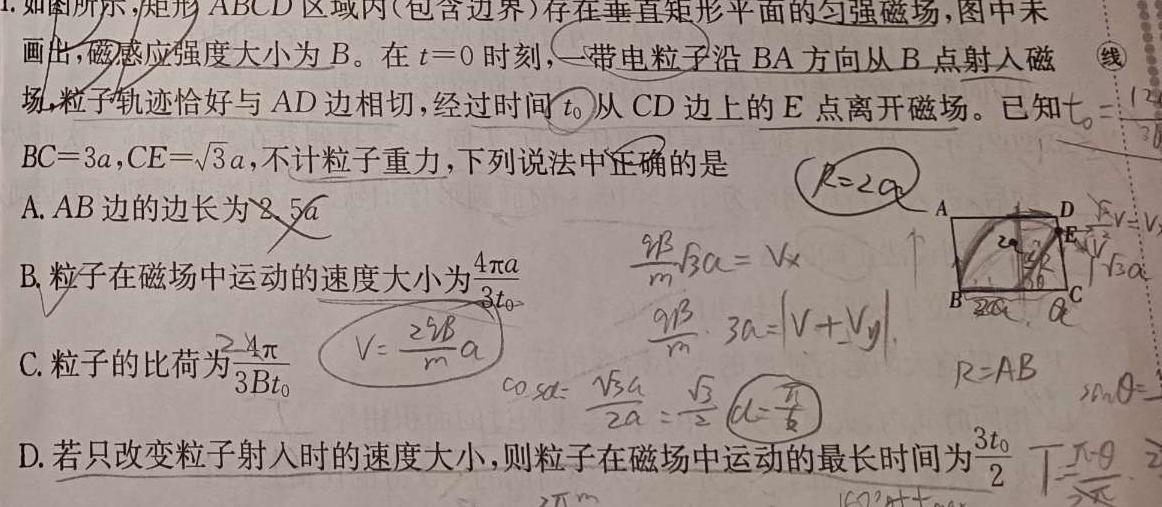 1. 如图所示,矩形 ABCD 区域内(包含边界)存在垂直矩形平面的匀强磁场,图中未
画出,磁感应强度大小为 B。在 t=0 时刻,一带电粒子沿 BA 方向从 B 点射入磁
场,粒子轨迹恰好与 AD 边相切,经过时间 t₀ 从 CD 边上的 E 点离开磁场。已知
BC=3a,CE=√3a,不计粒子重力,下列说法中正确的是
A. AB 边的边长为 2.5a
B. 粒子在磁场中运动的速度大小为 4πa/3t₀
C. 粒子的比荷为 4π/3Bt₀
D. 若只改变粒子射入时的速度大小,则粒子在磁场中运动的最长时间为 3t₀/2
线
R=2a
A
D
E
B
C
2a
√3a
a
qB/m √3a = Vx
qB/m · 3a = |V + Vy|
V = 2qB/m a
cosα = √3a/2a = √3/2
α = π/6
R=AB